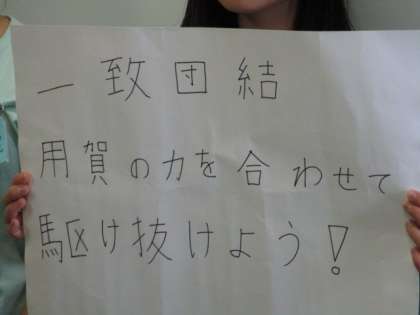 一致団結
用賀の力を合わせて
駆け抜けよう!